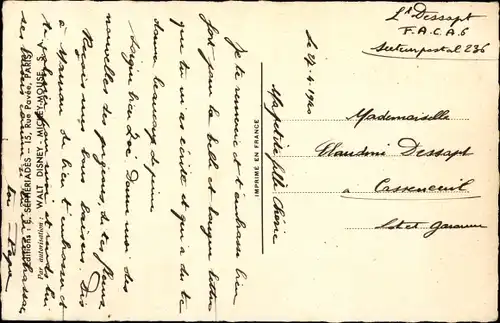 Lt Dessapt
F.A.C.A.6
Secteur postal 236
le 27.4.1940
Ma petite fille chérie
Je te remercie et t'embrasse bien
fort pour ta belle et longue lettre
que tu m'as écrite et qui a dû te
donner beaucoup de peine
Soigne bien Zoé. Donne moi des
nouvelles des pigeons, de tes fleurs.
Reçois mes bons baisers. Dis
à Maman de bien t'embrasser et
ton Papa
Mademoiselle
Claudine Dessapt
à Casseneuil
Lot et Garonne
IMPRIMÉ EN FRANCE
Éditions : G. SÉPHÉRIADÈS — 15, Rue Pavée, PARIS
Par autorisation WALT DISNEY - MICKEY-MOUSE, S. A.